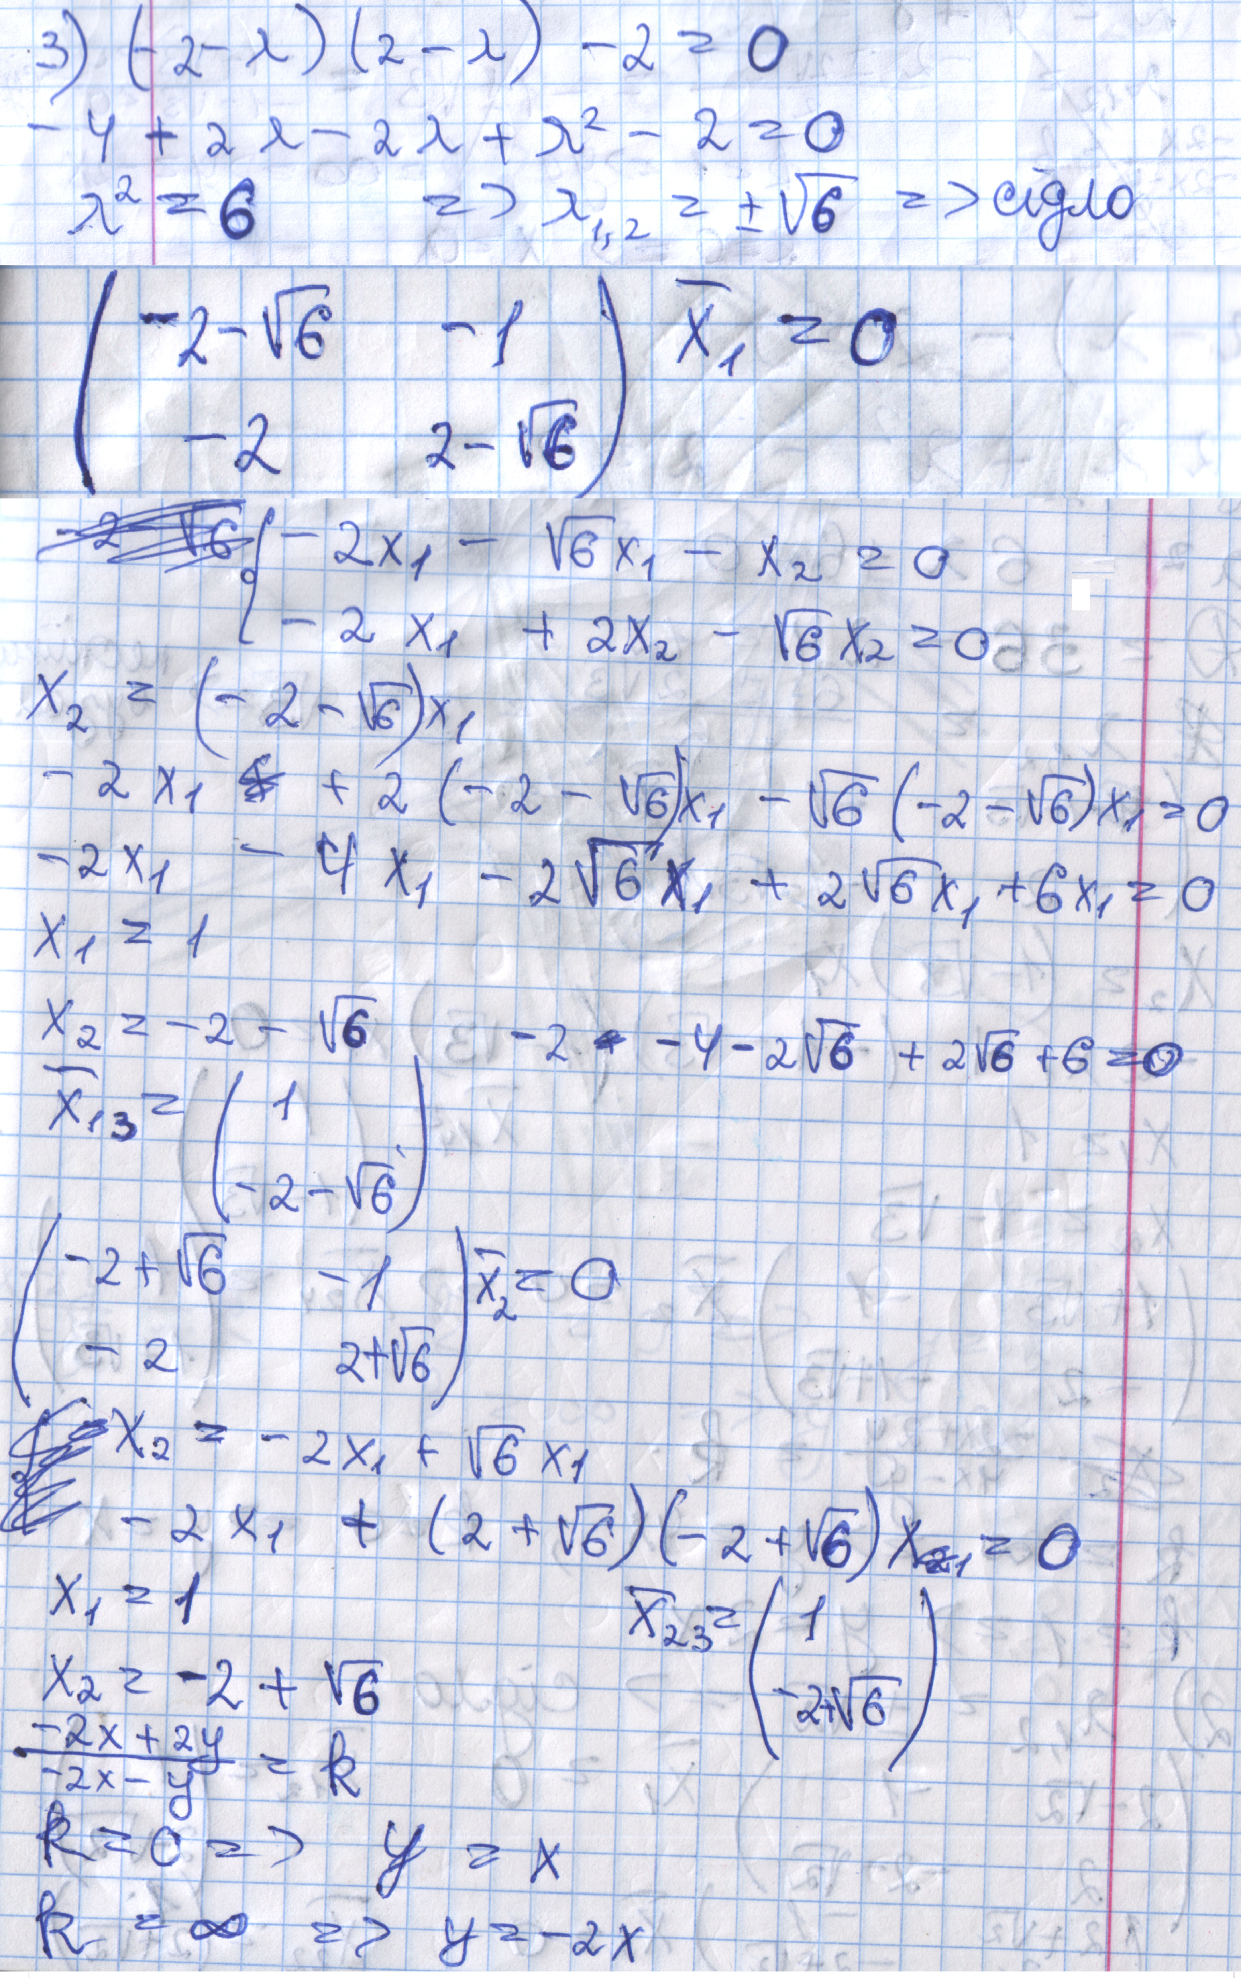 3) (-2-λ)(2-λ) -2 = 0
-4 + 2λ - 2λ + λ² - 2 = 0
λ² = 6 => λ₁,₂ = ±√6 => сідло
( -2-√6 -1 ) x̄₁ = 0
( -2 2-√6 )
{ -2x₁ - √6x₁ - x₂ = 0
{ -2x₁ + 2x₂ - √6x₂ = 0
x₂ = (-2-√6)x₁
-2x₁ + 2(-2-√6)x₁ - √6(-2-√6)x₁ = 0
-2x₁ - 4x₁ - 2√6x₁ + 2√6x₁ + 6x₁ = 0
x₁ = 1
x₂ = -2 - √6 -2 -4 - 2√6 + 2√6 + 6 = 0
x̄₁₃ = ( 1
-2-√6 )
( -2+√6 -1 ) x̄₂ = 0
( -2 2+√6 )
x₂ = -2x₁ + √6x₁
-2x₁ + (2+√6)(-2+√6)x₁ = 0
x₁ = 1 x̄₂₃ = ( 1
x₂ = -2 + √6 -2+√6 )
-2x+2y
-2x-y = k
k = 0 => y = x
k = ∞ => y = -2x